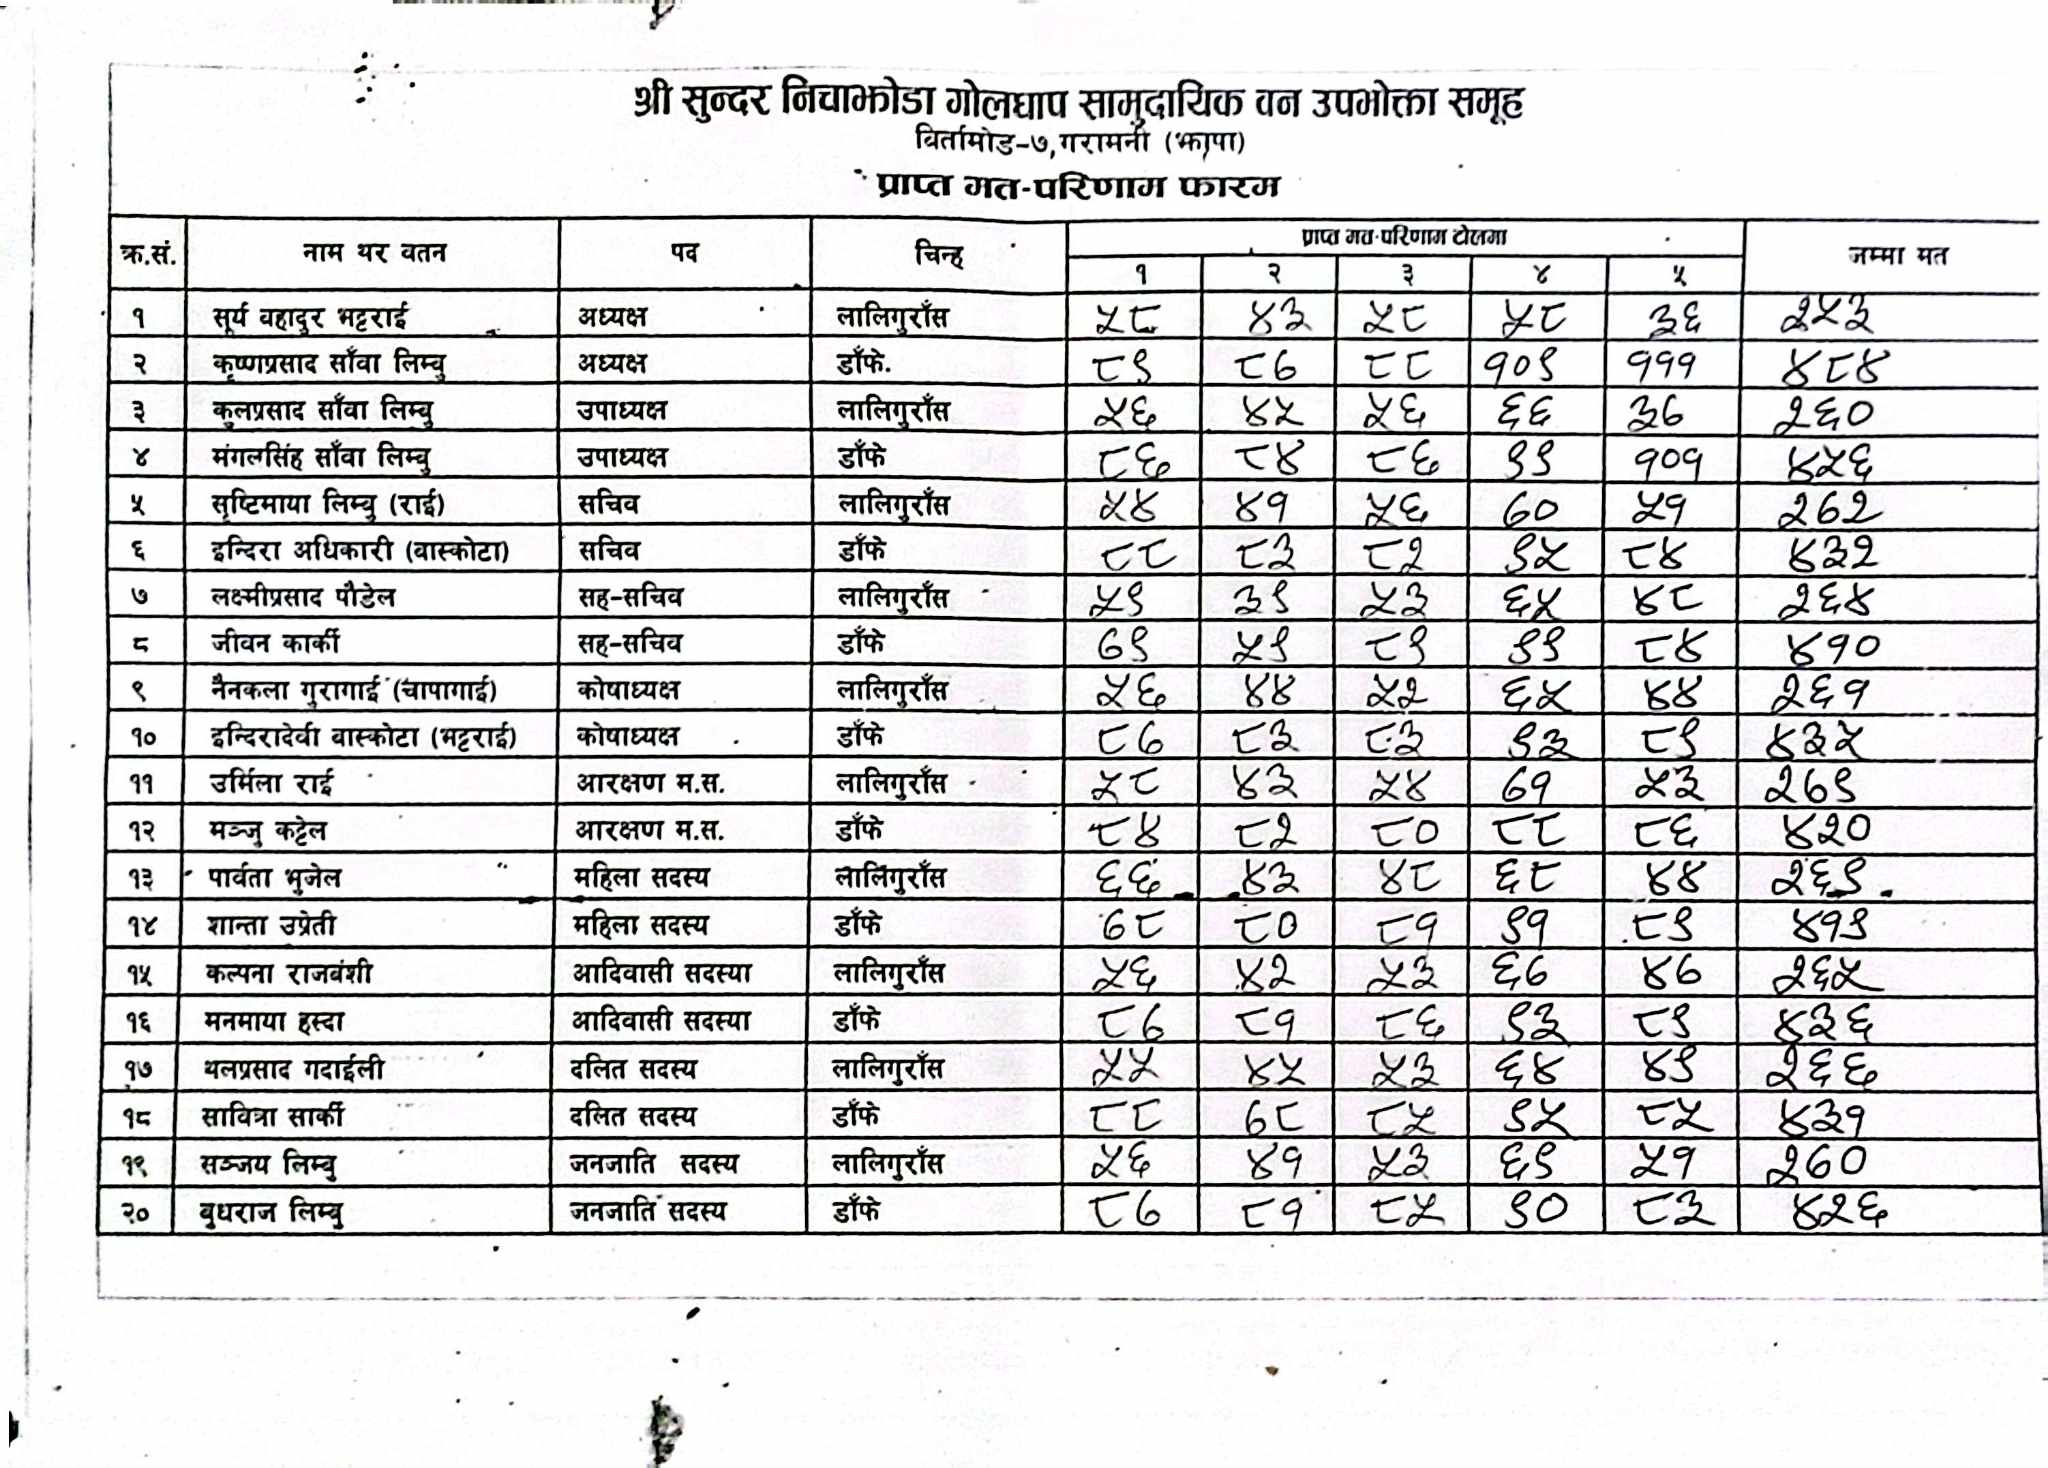 श्री सुन्दर निचाझोडा गोलघाप सामुदायिक वन उपभोक्ता समूह
विर्तामोड-७,गरामनी (झापा)
प्राप्त मत-परिणाम फारम
क्र.सं. नाम थर वतन पद चिन्ह प्राप्त मत-परिणाम टोलमा जम्मा मत
१ २ ३ ४ ५
१ सूर्य वहादुर भट्टराई अध्यक्ष लालिगुराँस ५८ ४३ ५८ ५८ ३६ २५३
२ कृष्णप्रसाद साँवा लिम्बु अध्यक्ष डाँफे. ८९ ८७ ८८ १०९ १११ ४८४
३ कुलप्रसाद साँवा लिम्बु उपाध्यक्ष लालिगुराँस ५६ ४५ ५६ ६६ ३७ २६०
४ मंगलसिंह साँवा लिम्बु उपाध्यक्ष डाँफे ८६ ८४ ८६ ९९ १०१ ४५६
५ सृष्टिमाया लिम्बु (राई) सचिव लालिगुराँस ५४ ४१ ५६ ७० ५१ २७२
६ इन्दिरा अधिकारी (वास्कोटा) सचिव डाँफे ८८ ८३ ८२ ९५ ८४ ४३२
७ लक्ष्मीप्रसाद पौडेल सह-सचिव लालिगुराँस ५९ ३९ ५३ ६५ ४८ २६४
८ जीवन कार्की सह-सचिव डाँफे ७९ ५९ ८९ ९९ ८४ ४१०
९ नैनकला गुरागाई (चापागाई) कोषाध्यक्ष लालिगुराँस ५६ ४४ ५२ ६५ ४४ २६१
१० इन्दिरादेवी वास्कोटा (भट्टराई) कोषाध्यक्ष डाँफे ८७ ८३ ८३ ९३ ८९ ४३५
११ उर्मिला राई आरक्षण म.स. लालिगुराँस ५८ ४३ ५४ ७१ ५३ २७९
१२ मञ्जु कट्टेल आरक्षण म.स. डाँफे ८४ ८२ ८० ८८ ८६ ४२०
१३ पार्वता भुजेल महिला सदस्य लालिगुराँस ६६ ४३ ४८ ६८ ४४ २६९
१४ शान्ता उप्रेती महिला सदस्य डाँफे ७८ ८० ८१ ९१ ८९ ४१९
१५ कल्पना राजबंशी आदिवासी सदस्या लालिगुराँस ५६ ४२ ५३ ६७ ४७ २६५
१६ मनमाया हस्दा आदिवासी सदस्या डाँफे ८७ ८१ ८६ ९३ ८९ ४३६
१७ थलप्रसाद गदाईली दलित सदस्य लालिगुराँस ५५ ४५ ५३ ६४ ४९ २६६
१८ सावित्रा सार्की दलित सदस्य डाँफे ८८ ७८ ८५ ९५ ८५ ४३१
१९ सञ्जय लिम्बु जनजाति सदस्य लालिगुराँस ५६ ४१ ५३ ६९ ५१ २७०
२० बुधराज लिम्बु जनजाति सदस्य डाँफे ८७ ८१ ८५ ९० ८३ ४२६